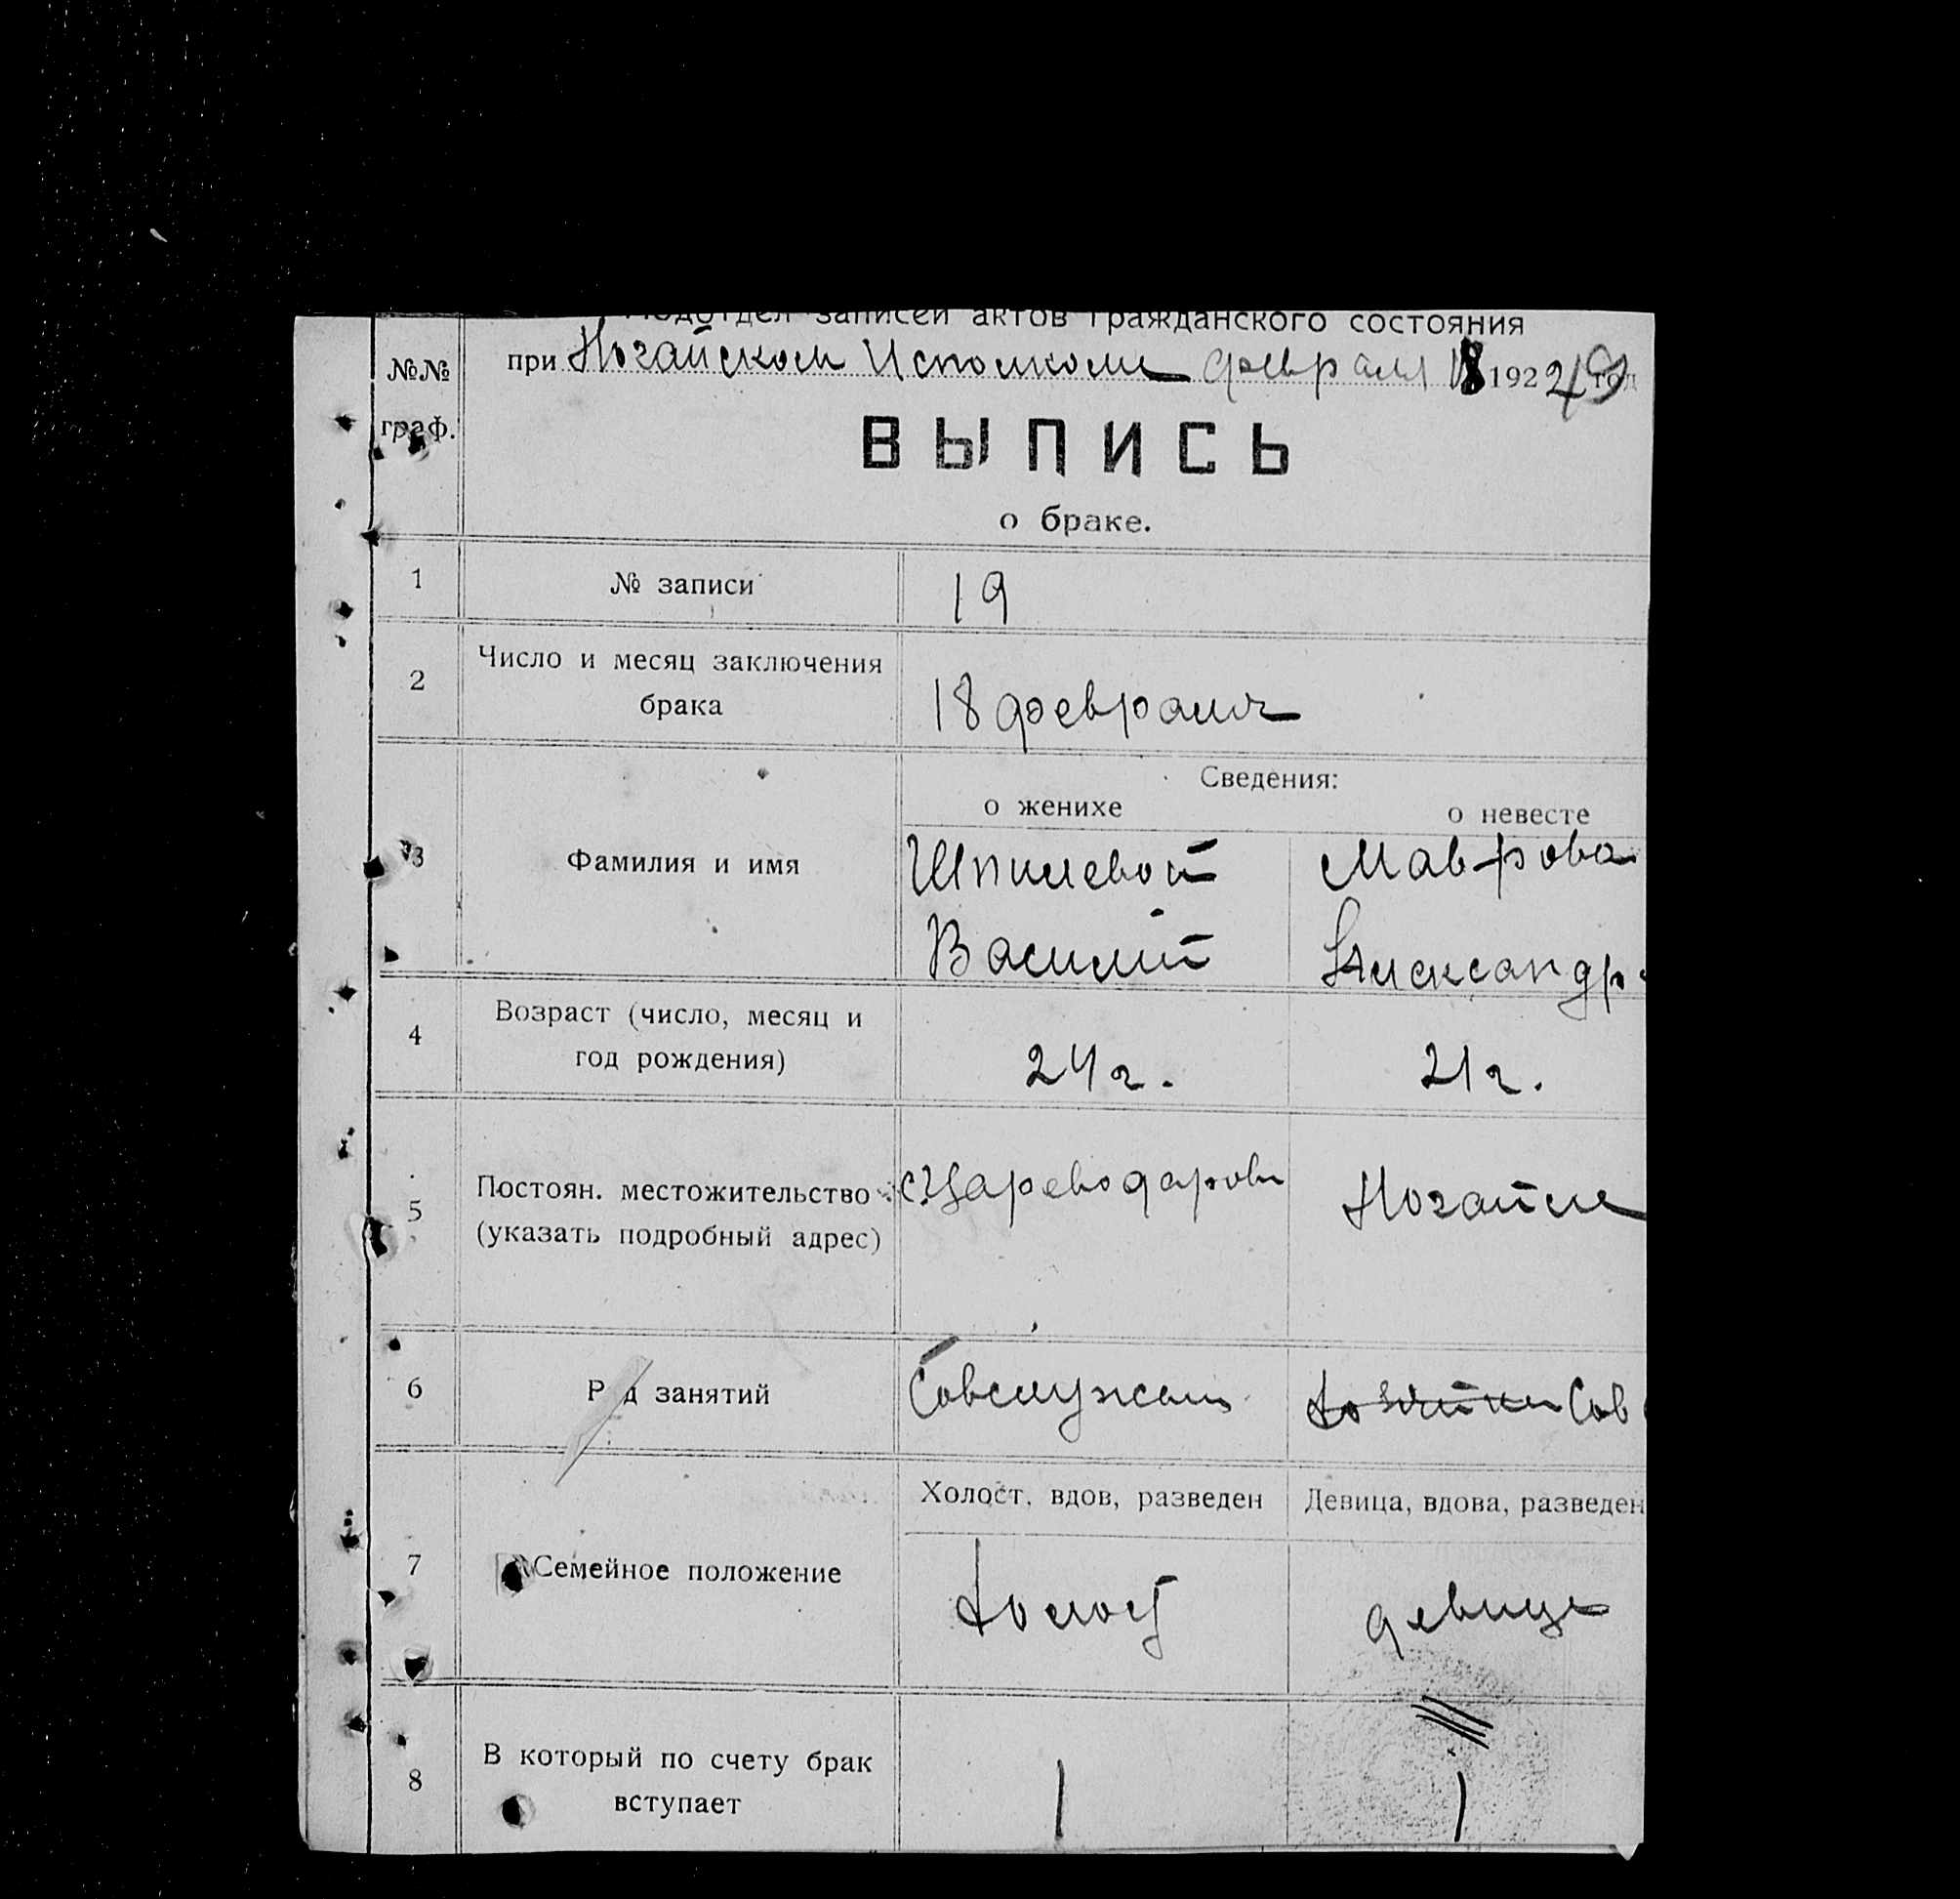 Подотдел записей актов гражданского состояния
при Ногайском Исполкоме февраля 18 1924 год
№№
граф.
ВЫПИСЬ
о браке.
1 № записи 19
2 Число и месяц заключения
брака
18 февраля
Сведения:
о женихе о невесте
3 Фамилия и имя
Шпилевой Маврова
Василий Александр
4 Возраст (число, месяц и
год рождения)
24 г. 21 г.
5 Постоян. местожительство
(указать подробный адрес)
Ногайск
6 Род занятий Совслужащ Сов
Холост, вдов, разведен Девица, вдова, разведен
7 Семейное положение
Холост девица
8 В который по счету брак
вступает
1 1